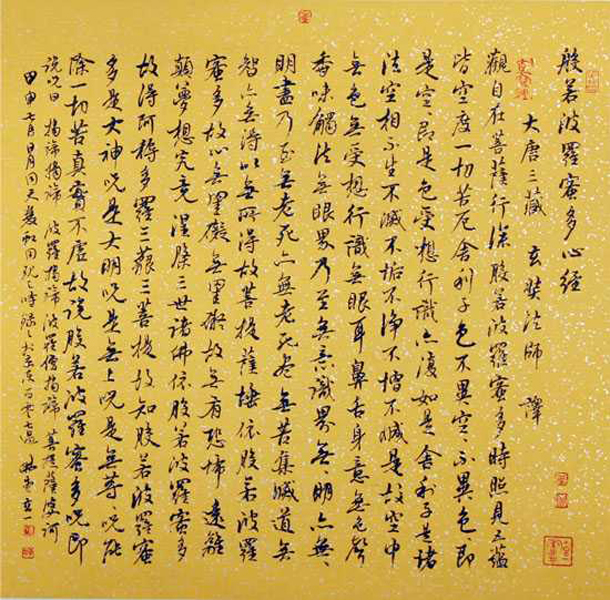 般若波羅蜜多心經
大唐三藏 玄奘法師 譯
觀自在菩薩行深般若波羅蜜多時照見五蘊
皆空度一切苦厄舍利子色不異空空不異色即
是空空即是色受想行識亦復如是舍利子是諸
法空相不生不滅不垢不淨不增不減是故空中
無色無受想行識無眼耳鼻舌身意無色聲
香味觸法無眼界乃至無意識界無無明亦無無
明盡乃至無老死亦無老死盡無苦集滅道無
智亦無得以無所得故菩提薩埵依般若波羅
蜜多故心無罣礙無罣礙故無有恐怖遠離
顛夢想究竟涅槃三世諸佛依般若波羅蜜多
故得阿耨多羅三藐三菩提故知般若波羅蜜
多是大神咒是大明咒是無上咒是無等等咒能
除一切苦真實不虛故說般若波羅蜜多咒即
說咒曰 揭諦揭諦 波羅揭諦 波羅僧揭諦 菩提薩婆訶
甲申七月